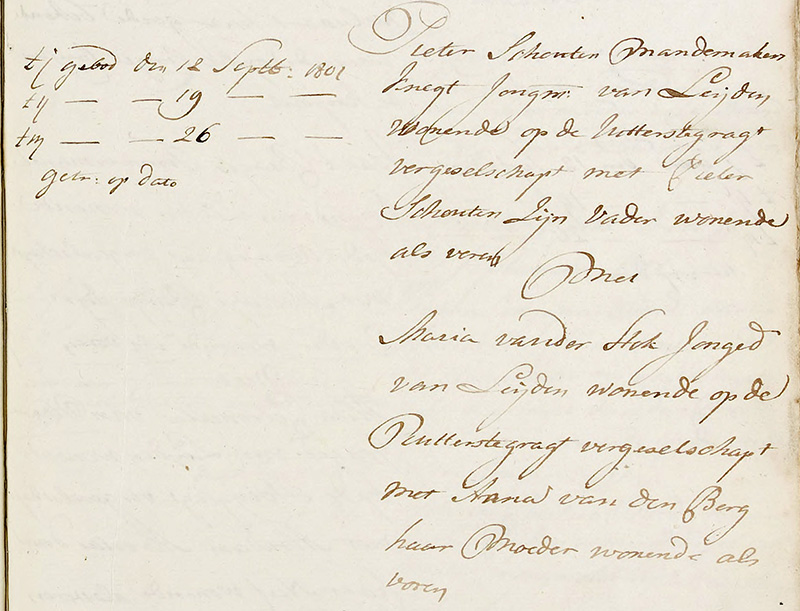 tj gebod den 12 Septb: 1801
tij — — 19 — —
tiij — — 26 — —
getr: op dato
Pieter Schouten Mandemakers
knegt Jongm: van Leijden
wonende op de Uutterstegragt
vergeselschapt met Pieter
Schouten Zijn Vader wonende
als voren
Met
Maria vander Stok Jonged
van Leijden wonende op de
Uutterstegragt vergeselschapt
met Anna van den Berg
haar Moeder wonende als
voren